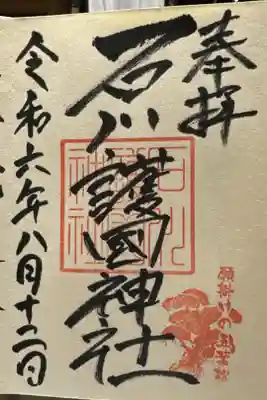 奉拝
石川護國神社
令和六年八月十二日